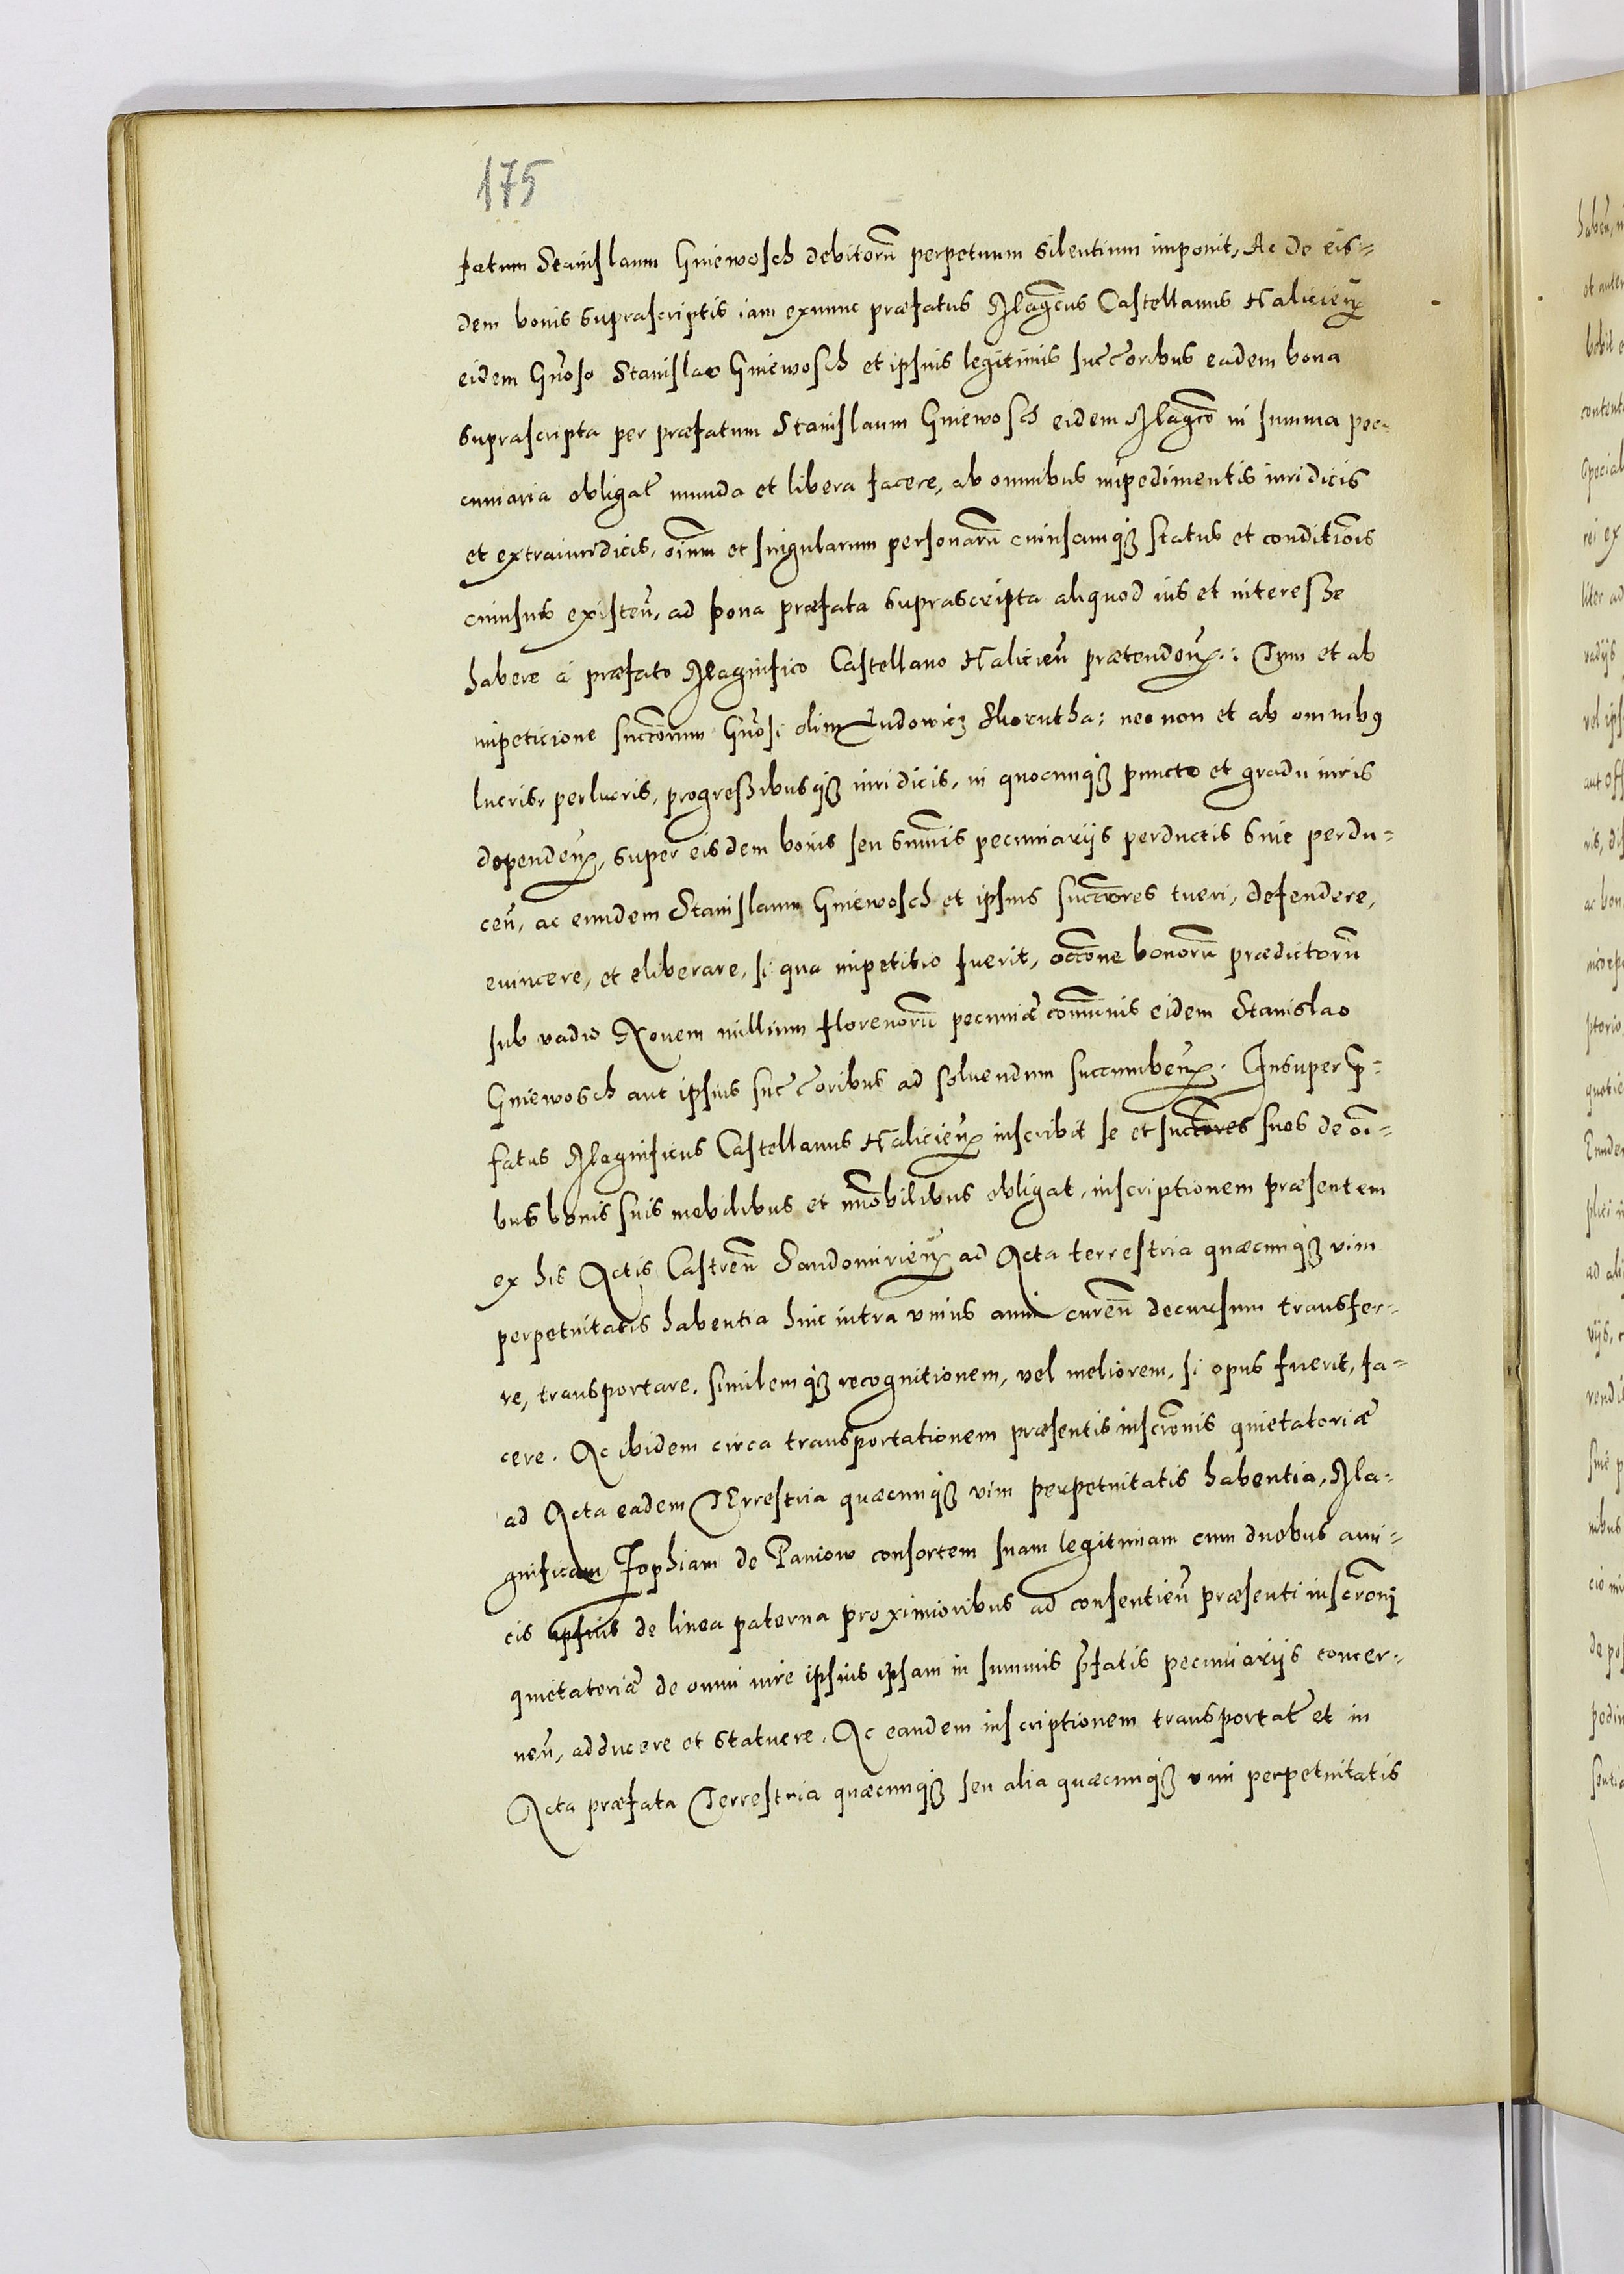 175
fatum Stanislaum Gniewosch debitorũ perpetuum silentium imponit, Ac de eis=
dem bonis suprascriptis iam exnunc præfatus Magc̃us Castellanus Halicien̄
eidem Gñoso Stanislao Gniewosch et ipsius legitimis succ̃oribus eadem bona
suprascripta per præfatum Stanislaum Gniewosch eidem Magc̃o in summa pec=
cuniaria obligat̃ munda et libera facere, ab omnibus impedimentis iuridicis
et extraiuridicis, oĩum et singularum personarũ cuiuscumqȝ status et conditiõis
cuiusuis existen̄, ad bona præfata suprascripta aliquod ius et interesse
habere á præfato Magnifico Castellano Halicien̄ prætenden̄: Tum et ab
impeticione succ̃orum Gñosi olim Ludowicz Skorutha: necnon et ab omnibꝰ
lucris, perlucris, progressibusqȝ iuridicis, in quocunqȝ puncto et gradu iuris
dependen̄, super eisdem bonis seu sum̃is pecuniarijs perductis siue perdu=
cen̄, ac eundem Stanislaum Gniewosch et ipsius succ̃ores tueri, defendere,
euincere, et eliberare, si qua impetitio fuerit, occ̃one bonorũ prædictorũ
sub vadio Nouem millium florenorũ pecuniæ com̃unis eidem Stanislao
Gniewosch aut ipsius succ̃oribus ad soluendum succumben̄. Insuper p̃=
fatus Magnificus Castellanus Halicien̄ inscribit se et succ̃ores suos de oĩ=
bus bonis suis mobilibus et im̃obilibus obligat, inscriptionem præsentem
ex his Actis Castren̄ Sandomirien̄ ad Acta terrestria quæcunqȝ vim
perpetuitatis habentia hinc intra vnius anni curen̄ decursum transfer=
re, transportare, similemqȝ recognitionem, vel meliorem, si opus fuerit, fa=
cere. Ac ibidem circa transportationem præsentis inscr̃onis quietatoriæ
ad Acta eadem Terrestria quæcunqȝ vim perpetuitatis habentia, Ma=
gnificam Zophiam de Paniow consortem suam legitimam cum duobus ami=
cis ipsius de linea paterna proximioribus ad consentien̄ præsenti inscr̃oni
quietatoriæ de omni iure ipsius ipsam in summis p̃fatis pecuniarijs concer=
nen̄, adducere et statuere. Ac eandem inscriptionem transportat̃ et in
Acta præfata Terrestria quæcunqȝ seu alia quæcunqȝ vim perpetuitatis